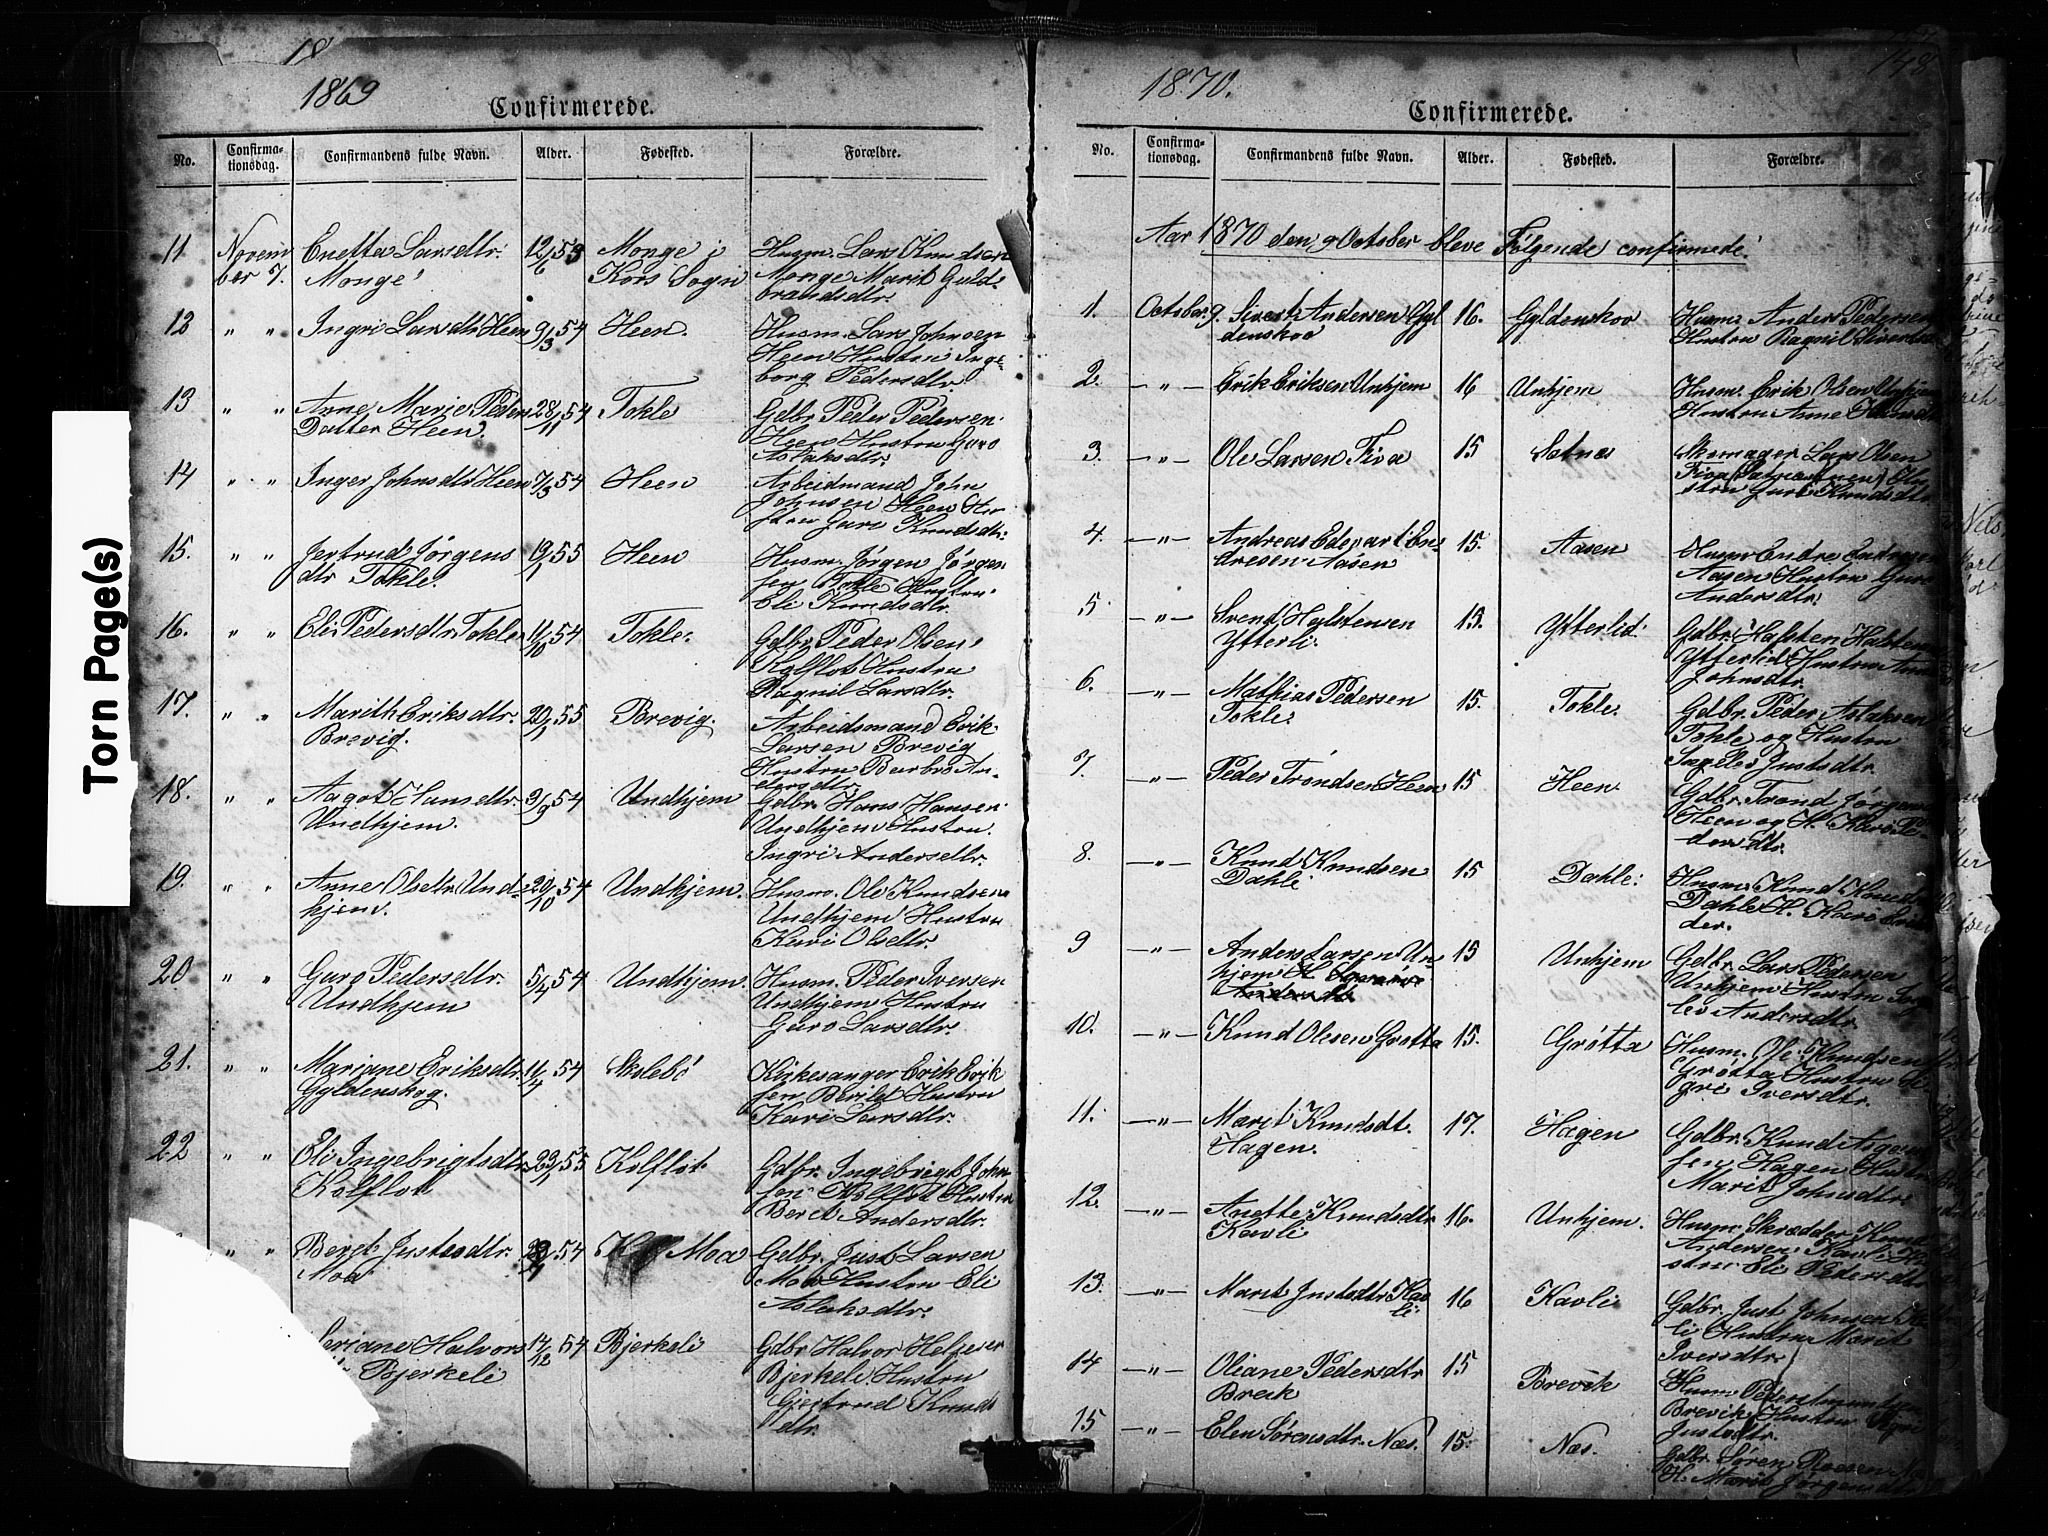 Torn Page(s)
18
1869
Confirmerede.
No.
Confirma-
tionsdag.
Confirmandens fulde Navn.
Alder.
Fødested.
Forældre.
11 Novem Enetta Larsdtr. 12/6 53 Monge i Husm. Lars Knudsen
ber 7. Monge Kors Sogn Monge Marit Guld-
brandsdtr.
12 " " Ingri Larsdtr Heen 9/3 54 Heen. Husm. Lars Johnsen
Heen Hustru Inge-
borg Pedersdtr.
13 " " Anne Marie Peders 28/11 54 Tokle Gdbr. Peder Pedersen
Datter Heen. Heen Hustru Guro
Aslaksdtr.
14 " " Inger Johnsdtr Heen 7/3 54 Heen Arbeidmand John
Johnsen Heen Hu-
stru Guri Knudsdtr.
15. " " Jertrud Jørgens 19/1 55 Heen Husm. Jørgen Jørgen-
dtr Tokle. sen Tokle Hustru
Eli Knudsdtr.
16. " " Eli Pedersdtr Tokle 11/10 54 Tokle. Gdbr. Peder Olsen
Kolflot Hustru
Ragnil Larsdtr.
17. " " Marith Eriksdtr. 20/1 55 Brevig. Arbeidsmand Erik
Brevig. Larsen Brevig
Hustru Barbro An-
dersdtr.
18. " " Aagot Hansdtr. 3/9 54 Undhjem Gdbr. Hans Hansen
Undhjem. Undhjem Hustru.
Ingri Andersdtr.
19. " " Anne Olsdtr. Und- 20/10 54 Undhjem. Husm. Ole Knudsen
hjem. Undhjem Hustru
Kari Olsdtr.
20 " " Guro Pedersdtr. 54 Undhjem. Husm. Peder Iversen
Undhjem Undhjem Hustru
Guro Larsdtr.
21. " " Mariane Eriksdtr. 11/4 54 Skolebö Kirkesanger Erik Erik
Gyldenskog. sen Hustru
Kari Larsdtr.
22 " " Eli Ingebrigtsdtr. 23/1 55 Kolflot Gdbr. Ingebrigt John
Kolflot sen Kolflot Hustru
Beret Andersdtr.
" " Bergt. Justsdtr. 54 Moa Gdbr. Just Larsen
Moa Moa Hustru Eli
Aslaksdtr.
eriane Halvors 14/12 54 Bjerkeli Gdbr Halvor Helgesen
Bjerkeli Bjerkeli Hustru
Gjertrud Knuds
dtr.
148
1870.
Confirmerede.
No.
Confirma-
tionsdag.
Confirmandens fulde Navn.
Alder.
Fødested.
Forældre.
Aar 1870 den 9 October bleve Følgende confirmede:
1. October 9. Sivert Andersen Gyl 16. Gyldenskov Husm. Anders Pedersen
denskov Hustru Ragnil Sivertsd
2. — " — Erik Eriksen Unhjem 16 Unhjem Husm. Erik Olsen Unhjem
Hustru Anne
3. — " — Ole Larsen Fiva 15 Sætnes Skomager Lars Olsen
Fiva
stru Guri Knudsdtr.
4. — " — Andreas Edevart En- 15. Aasen Husm Endre Endresen
dresen Aasen Aasen Hustru Guro
Andersdtr.
5 — " — Svend Halstensen 15. Ytterlid. Gdbr. Halsten Halsten
Ytterli. Ytterlid Hustru
Johnsdtr.
6. — " — Mathias Pedersen 15. Tokle. Gdbr. Peder Aslaksen
Tokle Tokle og Hustru
Justsdtr.
7. — " — Peder Tröndsen Heen 15 Heen Gdbr. Trond Jørgen
Heen og H. Kari Pe-
dersdtr.
8. — " — Knud Knudsen 15 Dahle. Husm. Knud Knuds
Dahle Dahle H. Kari
der.
9 — " — Anders Larsen Un- 15 Unhjem Gdbr. Lars Pedersen
hjem Unhjem Hustru Inge-
lev Andersdtr.
10. — " — Knud Olsen Grøtta 15. Grøtta Husm. Ole Knudsen
Grøtta Hustru Si-
gri Iversdtr.
11. — " — Marit Knudsdt. 17. Hagen Gdbr. Knud
Hagen. sen Hagen Hustru
Marit Johnsdtr.
12. — " — Anette Knudsdtr 16. Unhjem. Husm. Skrædder Knud
Kavli Andersen Kavli Hu-
stru Eli Pedersdtr
13. — " — Marit Justsdtr Kav 16 Kavli Gdbr. Just Johnsen Kav
li li Hustru Marit
Iversdtr.
14 — " — Oliane Pedersdtr 15 Brevik Husm. Peder
Brevik Hustru
Justsdtr.
15 — " — Elen Sørensdtr. Næs. 15. Næs. Gdbr. Søren
H. Marit Jørgensdtr